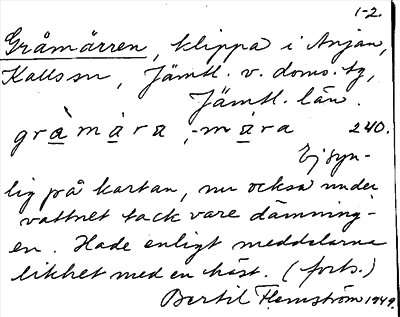 1-2.
Gråmärren, klippa i Anjan,
Kallssn, Jämtl. v. doms. tg,
Jämtl. län.
gràmàra, -màra 240.
Ej syn-
lig på kartan, nu också under
vattnet tack vare dämning-
en. Hade enligt meddelarna
likhet med en häst. (forts.)
Bertil Flemström 1949.